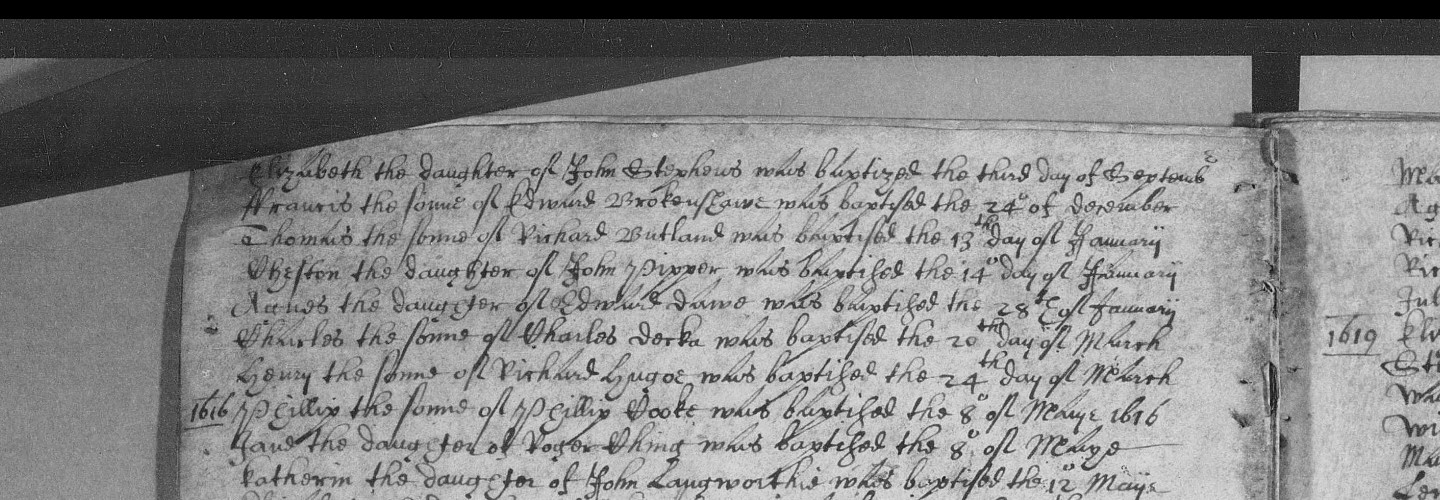 Elizabeth the daughter of John Stephens was baptized the third day of Septemb
ffrancis the sonne of Edward Brokenshawe was baptised the 24° of december
Thomas the sonne of Richard Butland was baptised the 13th day of January
Cheston the daughter of John Pipper was baptised the 14° day of January
Agnes the daughter of Edward dawe was baptised the 28th of January
Charles the sonne of Charles decka was baptised the 20th day of March
Henry the sonne of Richard Hugoe was baptised the 24th day of March
1616 Phillip the sonne of Phillip Cooke was baptised the 8° of Maye 1616
Jane the daughter of Roger Ching was baptised the 8° of Maye
Katherin the daughter of John Langworthie was baptised the 12° Maye
Ric
Ric
1619